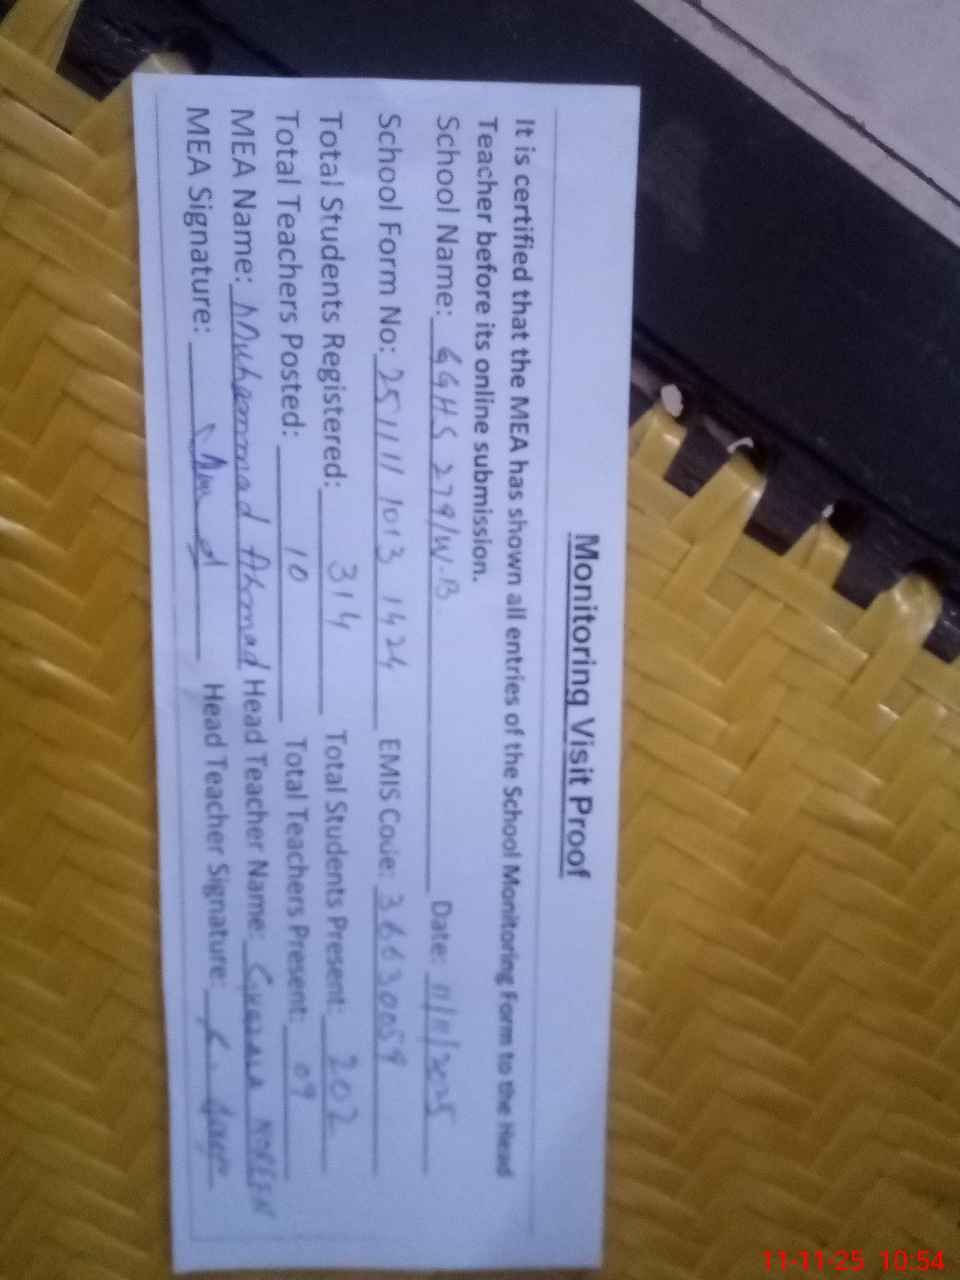 Monitoring Visit Proof
It is certified that the MEA has shown all entries of the School Monitoring Form to the Head
Teacher before its online submission.
School Name: GGHS 279/W-B Date: 11/11/2025
School Form No: 251111 1013 1424 EMIS Code: 36630059
Total Students Registered: 314 Total Students Present: 202
Total Teachers Posted: 10 Total Teachers Present: 09
MEA Name: Muhammad Ahmad Head Teacher Name: GHAZALA NOREEN
MEA Signature: Head Teacher Signature:
11-11-25 10:54